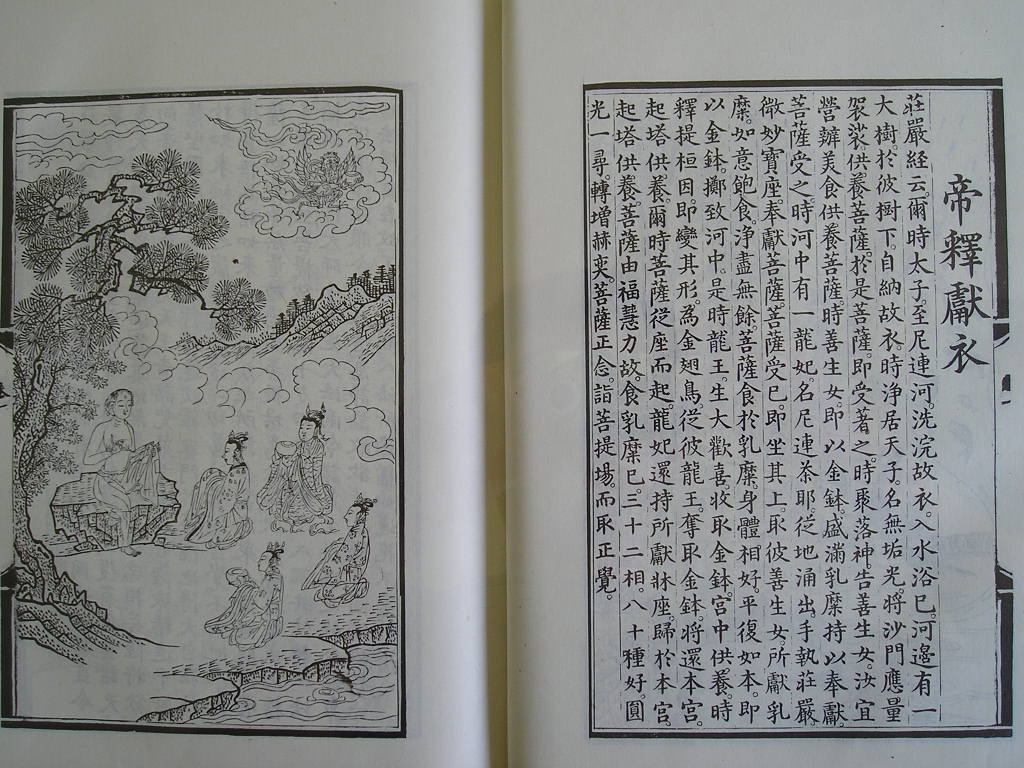 帝釋獻衣
莊嚴經云。爾時太子至尼連河洗浣故衣。入水浴已。河邊有一
大樹。於彼樹下。自納故衣。時淨居天子。名無垢光。將沙門應量
袈裟供養菩薩。於是菩薩。即受著之。時聚落神。告善生女。汝宜
營辦美食供養菩薩。時善生女即以金鉢。盛滿乳糜持以奉獻
菩薩受之。時河中有一龍妃。名尼連茶耶。從地涌出。手執莊嚴
微妙寶座。奉獻菩薩。菩薩受已。即坐其上。取彼善生女所獻乳
糜。如意飽食。淨盡無餘。菩薩食於乳糜。身體相好。平復如本。即
以金鉢。擲致河中。是時龍王。生大歡喜。收取金鉢。宮中供養。時
釋提桓因。即變其形。為金翅鳥。從彼龍王。奪取金鉢。將還本宮。
起塔供養。爾時菩薩從座而起。龍妃還持所獻牀座。歸於本宮。
起塔供養。菩薩由福慧力故。食乳糜已。三十二相。八十種好。圓
光一尋。轉增赫奕。菩薩正念。詣菩提場而取正覺。